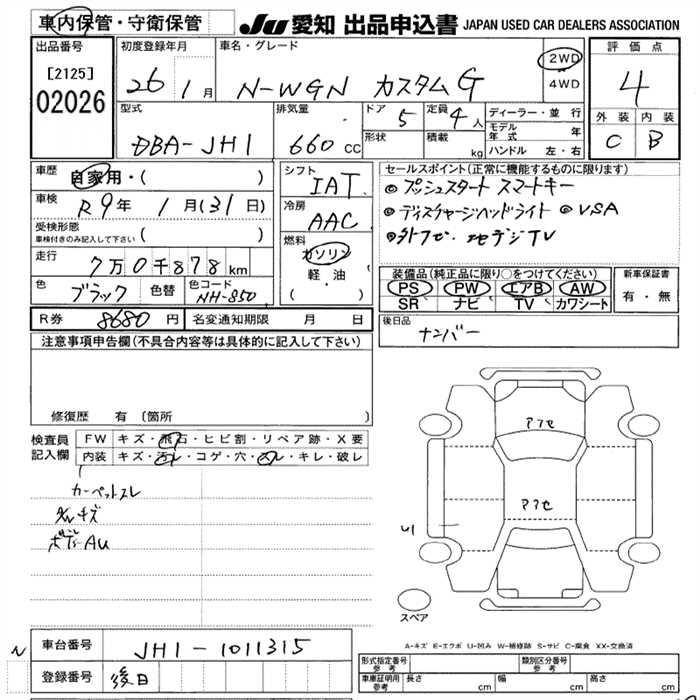 車内保管・守衛保管
JU 愛知 出品申込書 JAPAN USED CAR DEALERS ASSOCIATION
出品番号
[2125]
02026
初度登録年月
26 1月
車名・グレード
N-WGN カスタムG
2WD
4WD
評価点
4
外装 内装
C B
型式
DBA-JH1
排気量
660 cc
ドア 5
形状
定員 4人
積載 kg
ディーラー・並行
モデル年式 年
ハンドル 左・右
車歴
自家用・( )
車検
R9年 1月(31日)
受検形態
車検付きのみ記入して下さい ( )
走行
7万0千878km
色
ブラック
色替
色コード
NH-850
シフト
IAT
冷房
AAC
燃料
ガソリン
軽・油
( ・ )
セールスポイント(正常に機能するものに限ります)
◎プッシュスタート スマートキー
◎ディスチャージヘッドライト ◎VSA
◎外アセ・地デジTV
装備品(純正品に限り○をつけてください)
PS PW エアB AW
SR ナビ TV カワシート
新車保証書
有・無
R券 8680円
名変通知期限 月 日
後日品
ナンバー
注意事項申告欄(不具合内容等は具体的に記入して下さい)
修復歴 有 〔箇所 〕
検査員記入欄
FW キズ・飛石・ヒビ割・リペア跡・X要
内装 キズ・汚レ・コゲ・穴・スレ・キレ・破レ
カーペットスレ
グレキズ
ボデーAU
アフセ
アフセ
U1
スペア
A-キズ E-エクボ U-凹み W-補修跡 S-サビ C-腐食 XX-交換済
車台番号 JH1-1011315
登録番号 後日
形式指定番号 参考
類別区分番号 参考
車庫証明用 参考 長さ cm 幅 cm 高さ cm